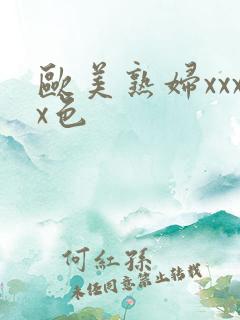 歐美熟婦xxx
x色
何紅孫
未经同意禁止转载